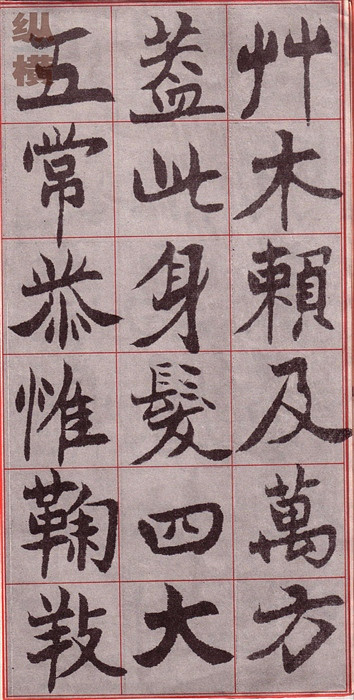 艸木賴及萬方
蓋此身髮四大
五常恭惟鞠𢼝
纵
横